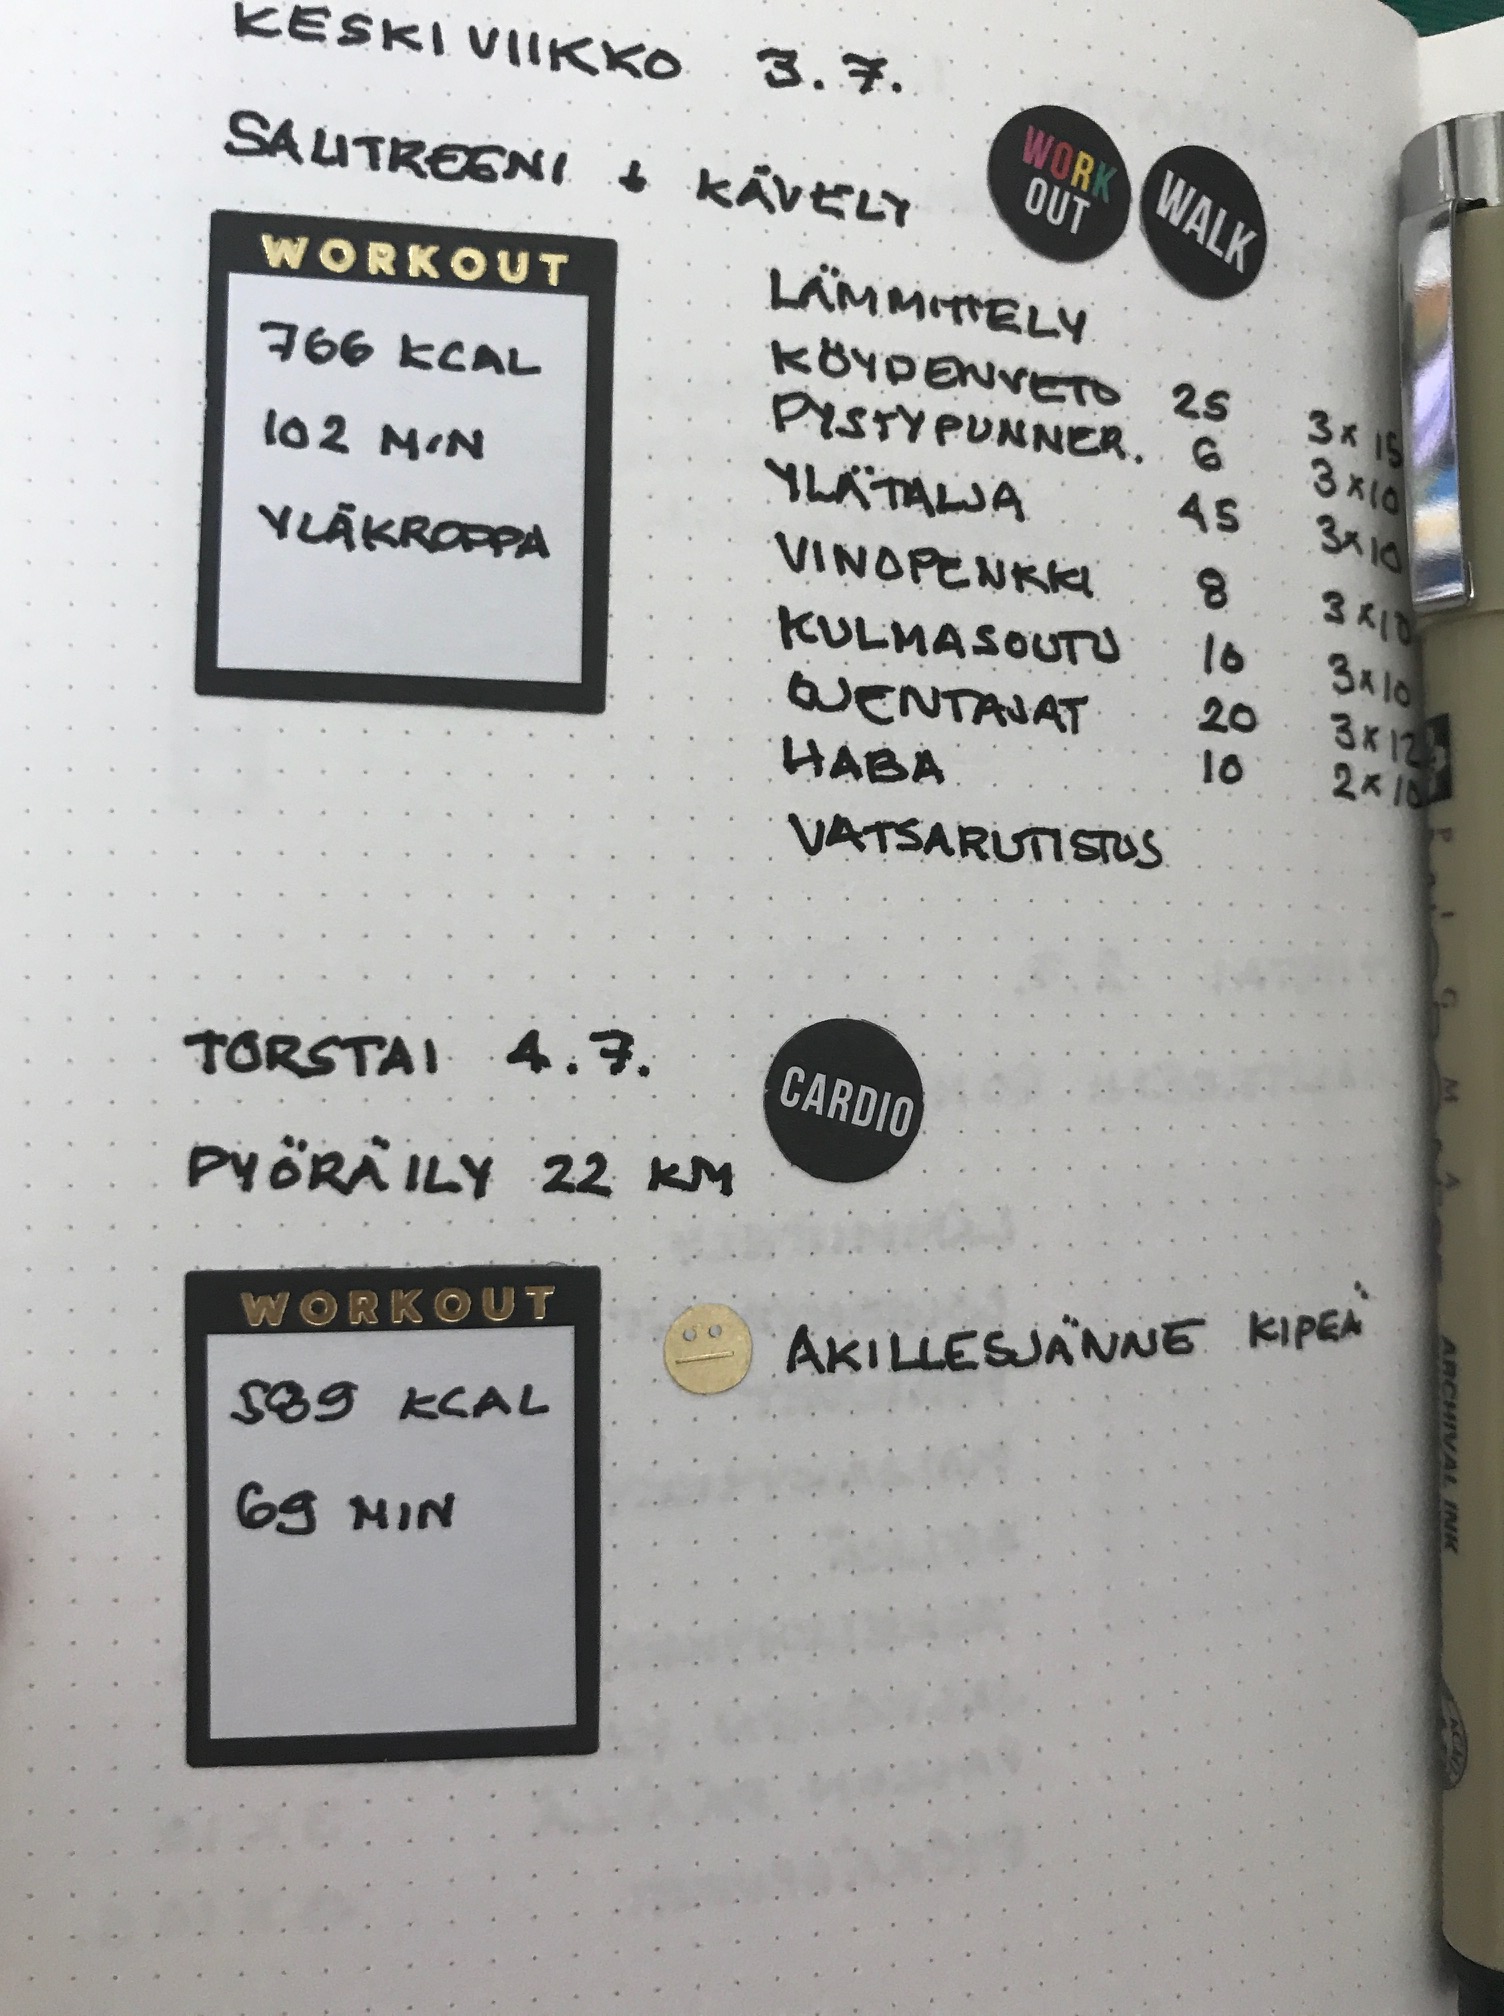 KESKIVIIKKO 3.7.
SALITREENI + KÄVELY
WORK
OUT
WALK
WORKOUT
766 KCAL
102 MIN
YLÄKROPPA
LÄMMITTELY
KÖYDENVETO 25 3x15
PYSTYPUNNER. 6 3x10
YLÄTALJA 45 3x10
VINOPENKKI 8 3x10
KULMASOUTU 10 3x10
OJENTAJAT 20 3x12
HABA 10 2x10
VATSARUTISTUS
TORSTAI 4.7.
CARDIO
PYÖRÄILY 22 KM
WORKOUT
589 KCAL
69 MIN
AKILLESJÄNNE KIPEÄ
PIGMA
ARCHIVAL INK